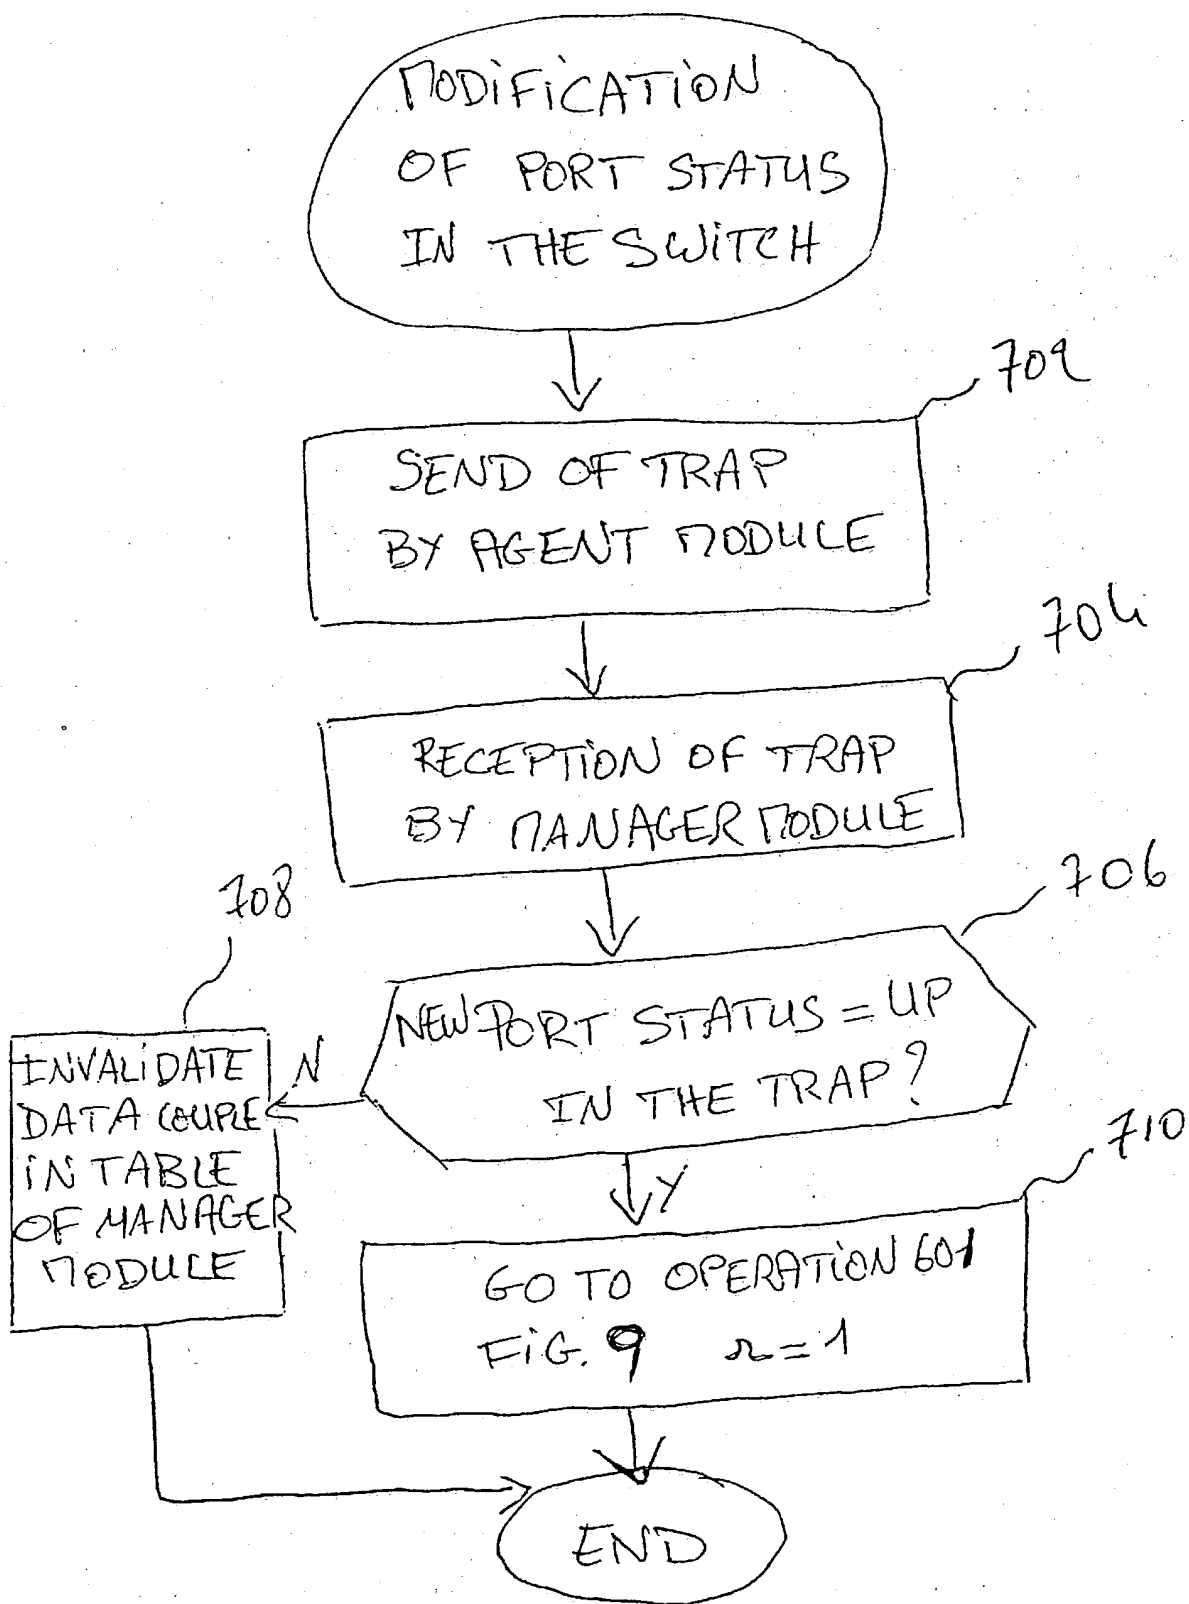 MODIFICATION
OF PORT STATUS
IN THE SWITCH
702
SEND OF TRAP
BY AGENT MODULE
704
RECEPTION OF TRAP
BY MANAGER MODULE
706
NEW PORT STATUS = UP
IN THE TRAP?
N
708
INVALIDATE
DATA COUPLE
IN TABLE
OF MANAGER
MODULE
Y
710
GO TO OPERATION 601
FIG. 9 r=1
END